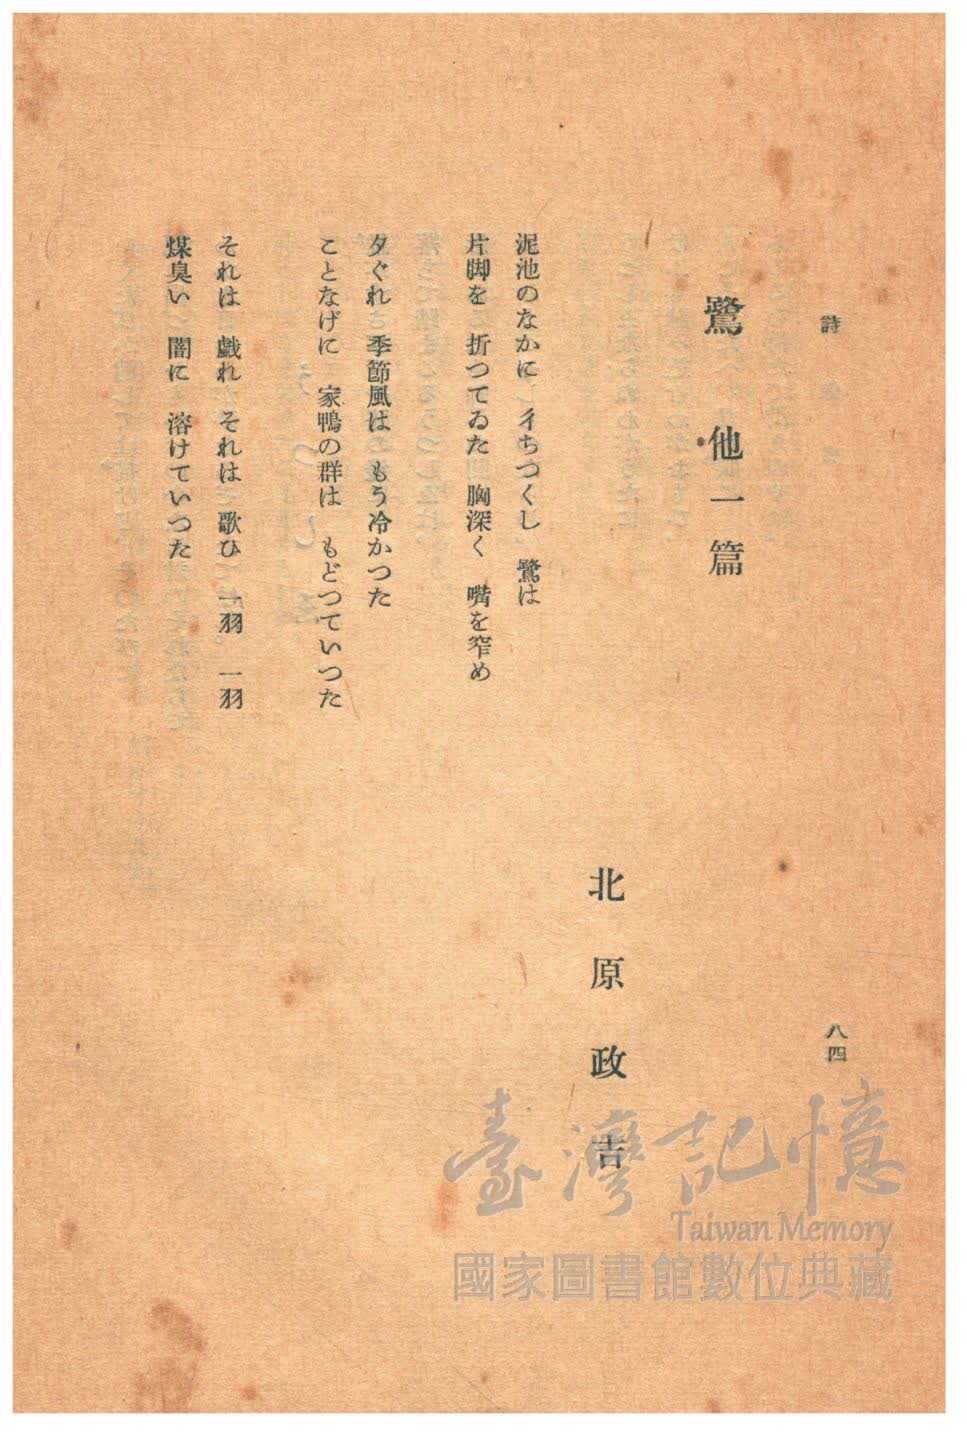 詩
八四
鷺 他一篇
北原政吉
泥池のなかに 彳ちつくし 鷺は
片脚を 折つてゐた 胸深く 嘴を窄め
夕ぐれ 季節風は もう冷かつた
ことなげに 家鴨の群は もどつていつた
それは 戯れ それは 歌ひ 一羽 一羽
煤臭い 闇に 溶けていつた
臺灣記憶
Taiwan Memory
國家圖書館數位典藏